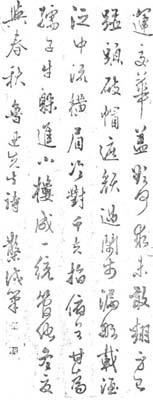 運交華蓋欲何求未敢翻身已
碰頭破帽遮顏過鬧市漏船載酒
泛中流橫眉冷對千夫指俯首甘為
孺子牛躲進小樓成一統管他冬夏
與春秋 魯迅先生詩